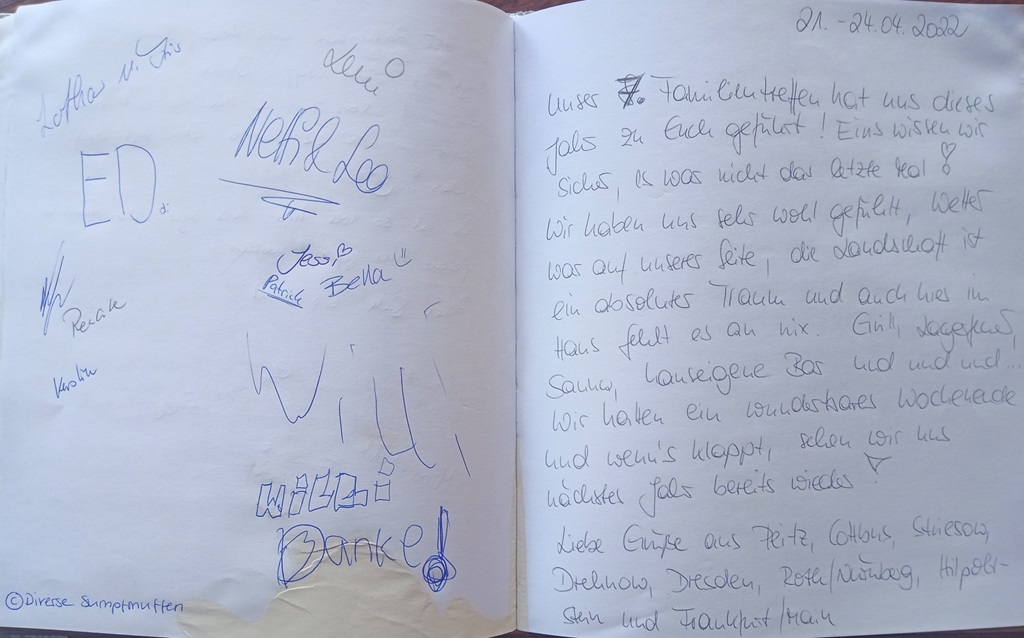 Lothar
Leni
ED
di
Nefi & Leo
Jessi
Patrick Bella
Renate
Kerstin
Willi
WILLI
Danke!
© Diverse Sumpfmutten
21. - 24.04.2022
Unser 7. Familientreffen hat uns dieses
Jahr zu Euch geführt! Eins wissen wir
sicher, es war nicht das letzte Mal!
Wir haben uns sehr wohl gefühlt, Wetter
war auf unserer Seite, die Landschaft ist
ein absoluter Traum und auch hier im
Haus fehlt es an nix. Grill, Lagerfeuer,
Sauna, hauseigene Bar und und und...
Wir hatten ein wunderbares Wochenende
und wenn's klappt, sehen wir uns
nächstes Jahr bereits wieder!
Liebe Grüße aus Peitz, Cottbus, Striesow,
Drehnow, Dresden, Roth/Nürnberg, Hilpolt-
stein und Frankfurt/Main